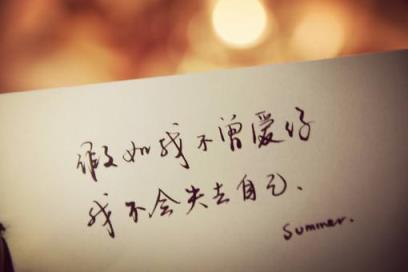 假如我不曾爱你
我不会失去自己、
Summer.